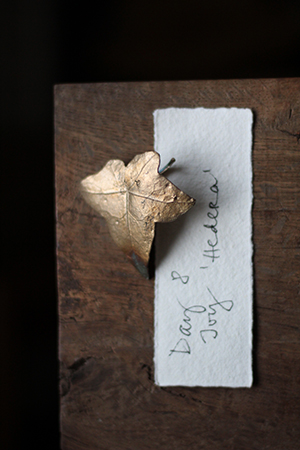 Day 8
Joy 'Hedera'